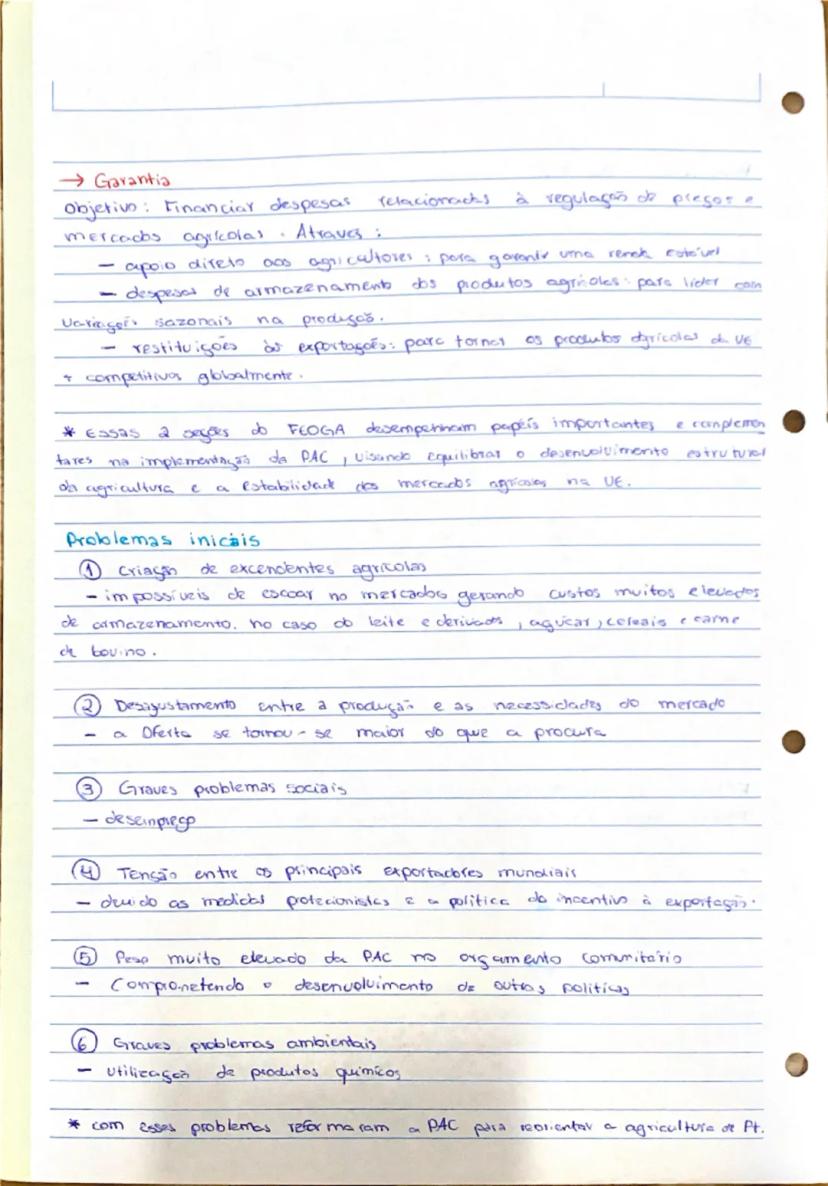 → Garantia
Objetivo: Financiar despesas relacionadas à regulação de preços e
mercados agrícolas. Atraves:
- apoio direto aos agricultores: para garantir uma renda estável
- despesas de armazenamento dos produtos agrícolas: para lider com
variações sazonais na produção.
- restituições às exportações: para tornar os produtos agrícolas da UE
+ competitivos globalmente.
* Essas 2 seções do FEOGA desempenham papéis importantes e complemen
tares na implementação da PAC, visando equilibrar o desenvolvimento estrutural
da agricultura e a estabilidade dos mercados agrícolas na UE.
Problemas iniciais
① Criação de excendentes agrícolas
- impossíveis de escoar no mercados gerando custos muitos elevados
de armazenamento. no caso do leite e derivados, açúcar, cereais e carne
de bovino.
② Desajustamento entre a produção e as necessidades do mercado
- a Oferta se tornou-se maior do que a procura
③ Graves problemas sociais
- desemprego
④ Tensão entre os principais exportadores mundiais
- devido as medidas protecionistas e a política do incentivo à exportação.
⑤ Peso muito elevado da PAC no orçamento comunitário
- Comprometendo o desenvolvimento de outras políticas
⑥ Graves problemas ambientais
- Utilização de produtos químicos
* com esses problemas reformaram a PAC para reorientar a agricultura de Pt.